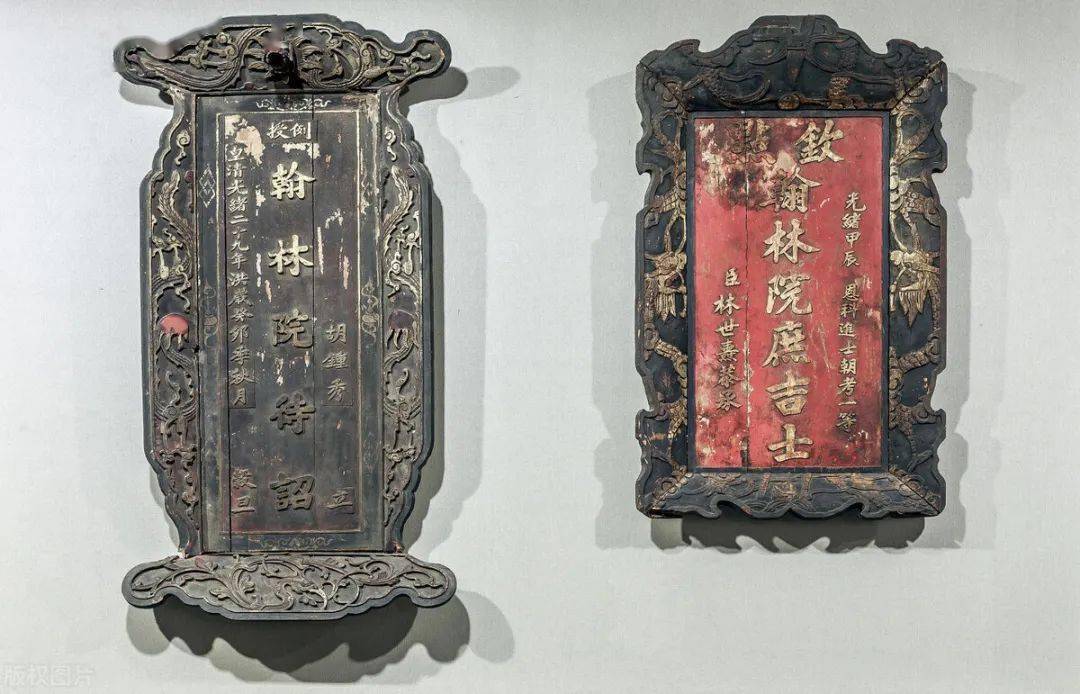 例授
胡鍾秀 立
翰林院待詔
皇清光緒二十九年 歲癸卯季秋月 穀旦
光緒甲辰 恩科進士朝考一等
欽點
翰林院庶吉士
臣林世燾恭承
版权图片